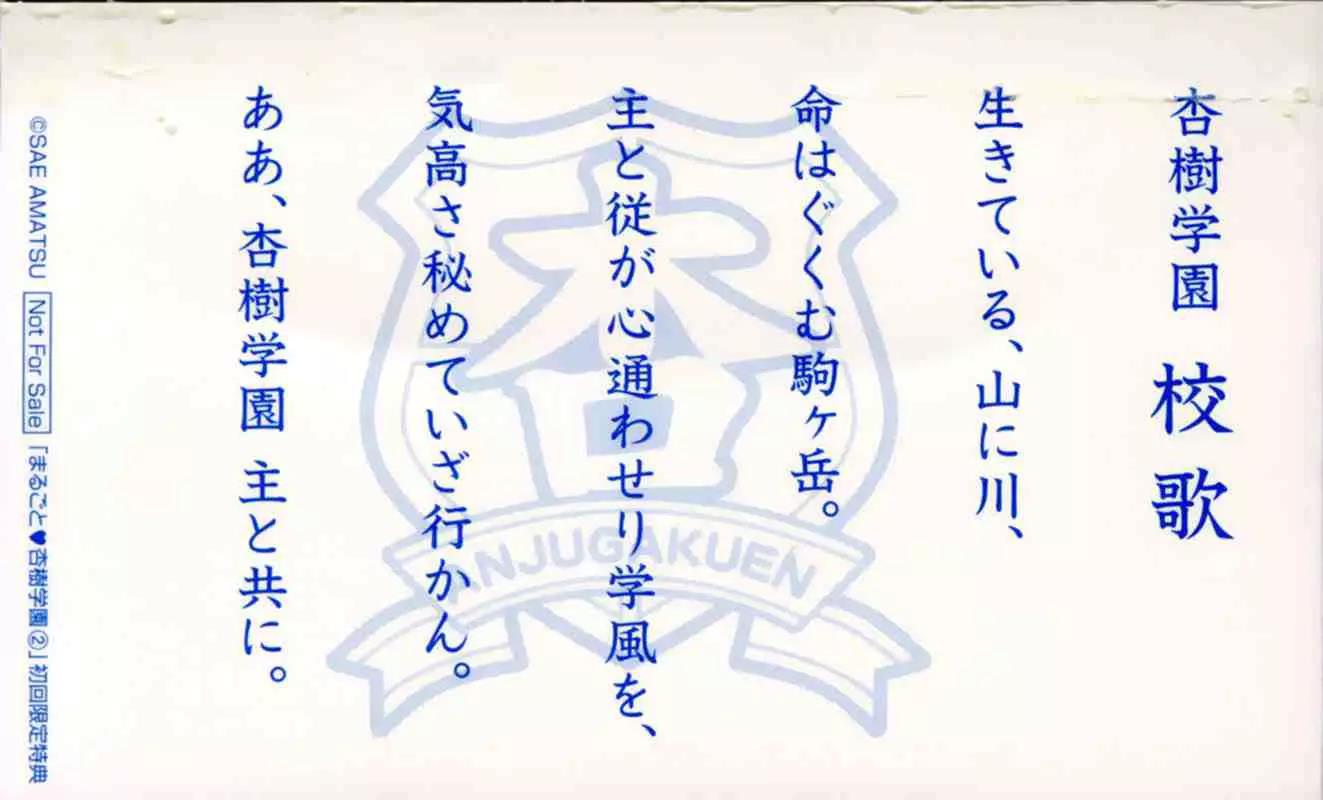 杏樹学園 校歌
生きている、山に川、
命はぐくむ駒ヶ岳。
主と従が心通わせり学風を、
気高さ秘めていざ行かん。
ああ、杏樹学園 主と共に。
©SAE AMATSU Not For Sale 「まるごと♥杏樹学園②」初回限定特典
杏
ANJUGAKUEN